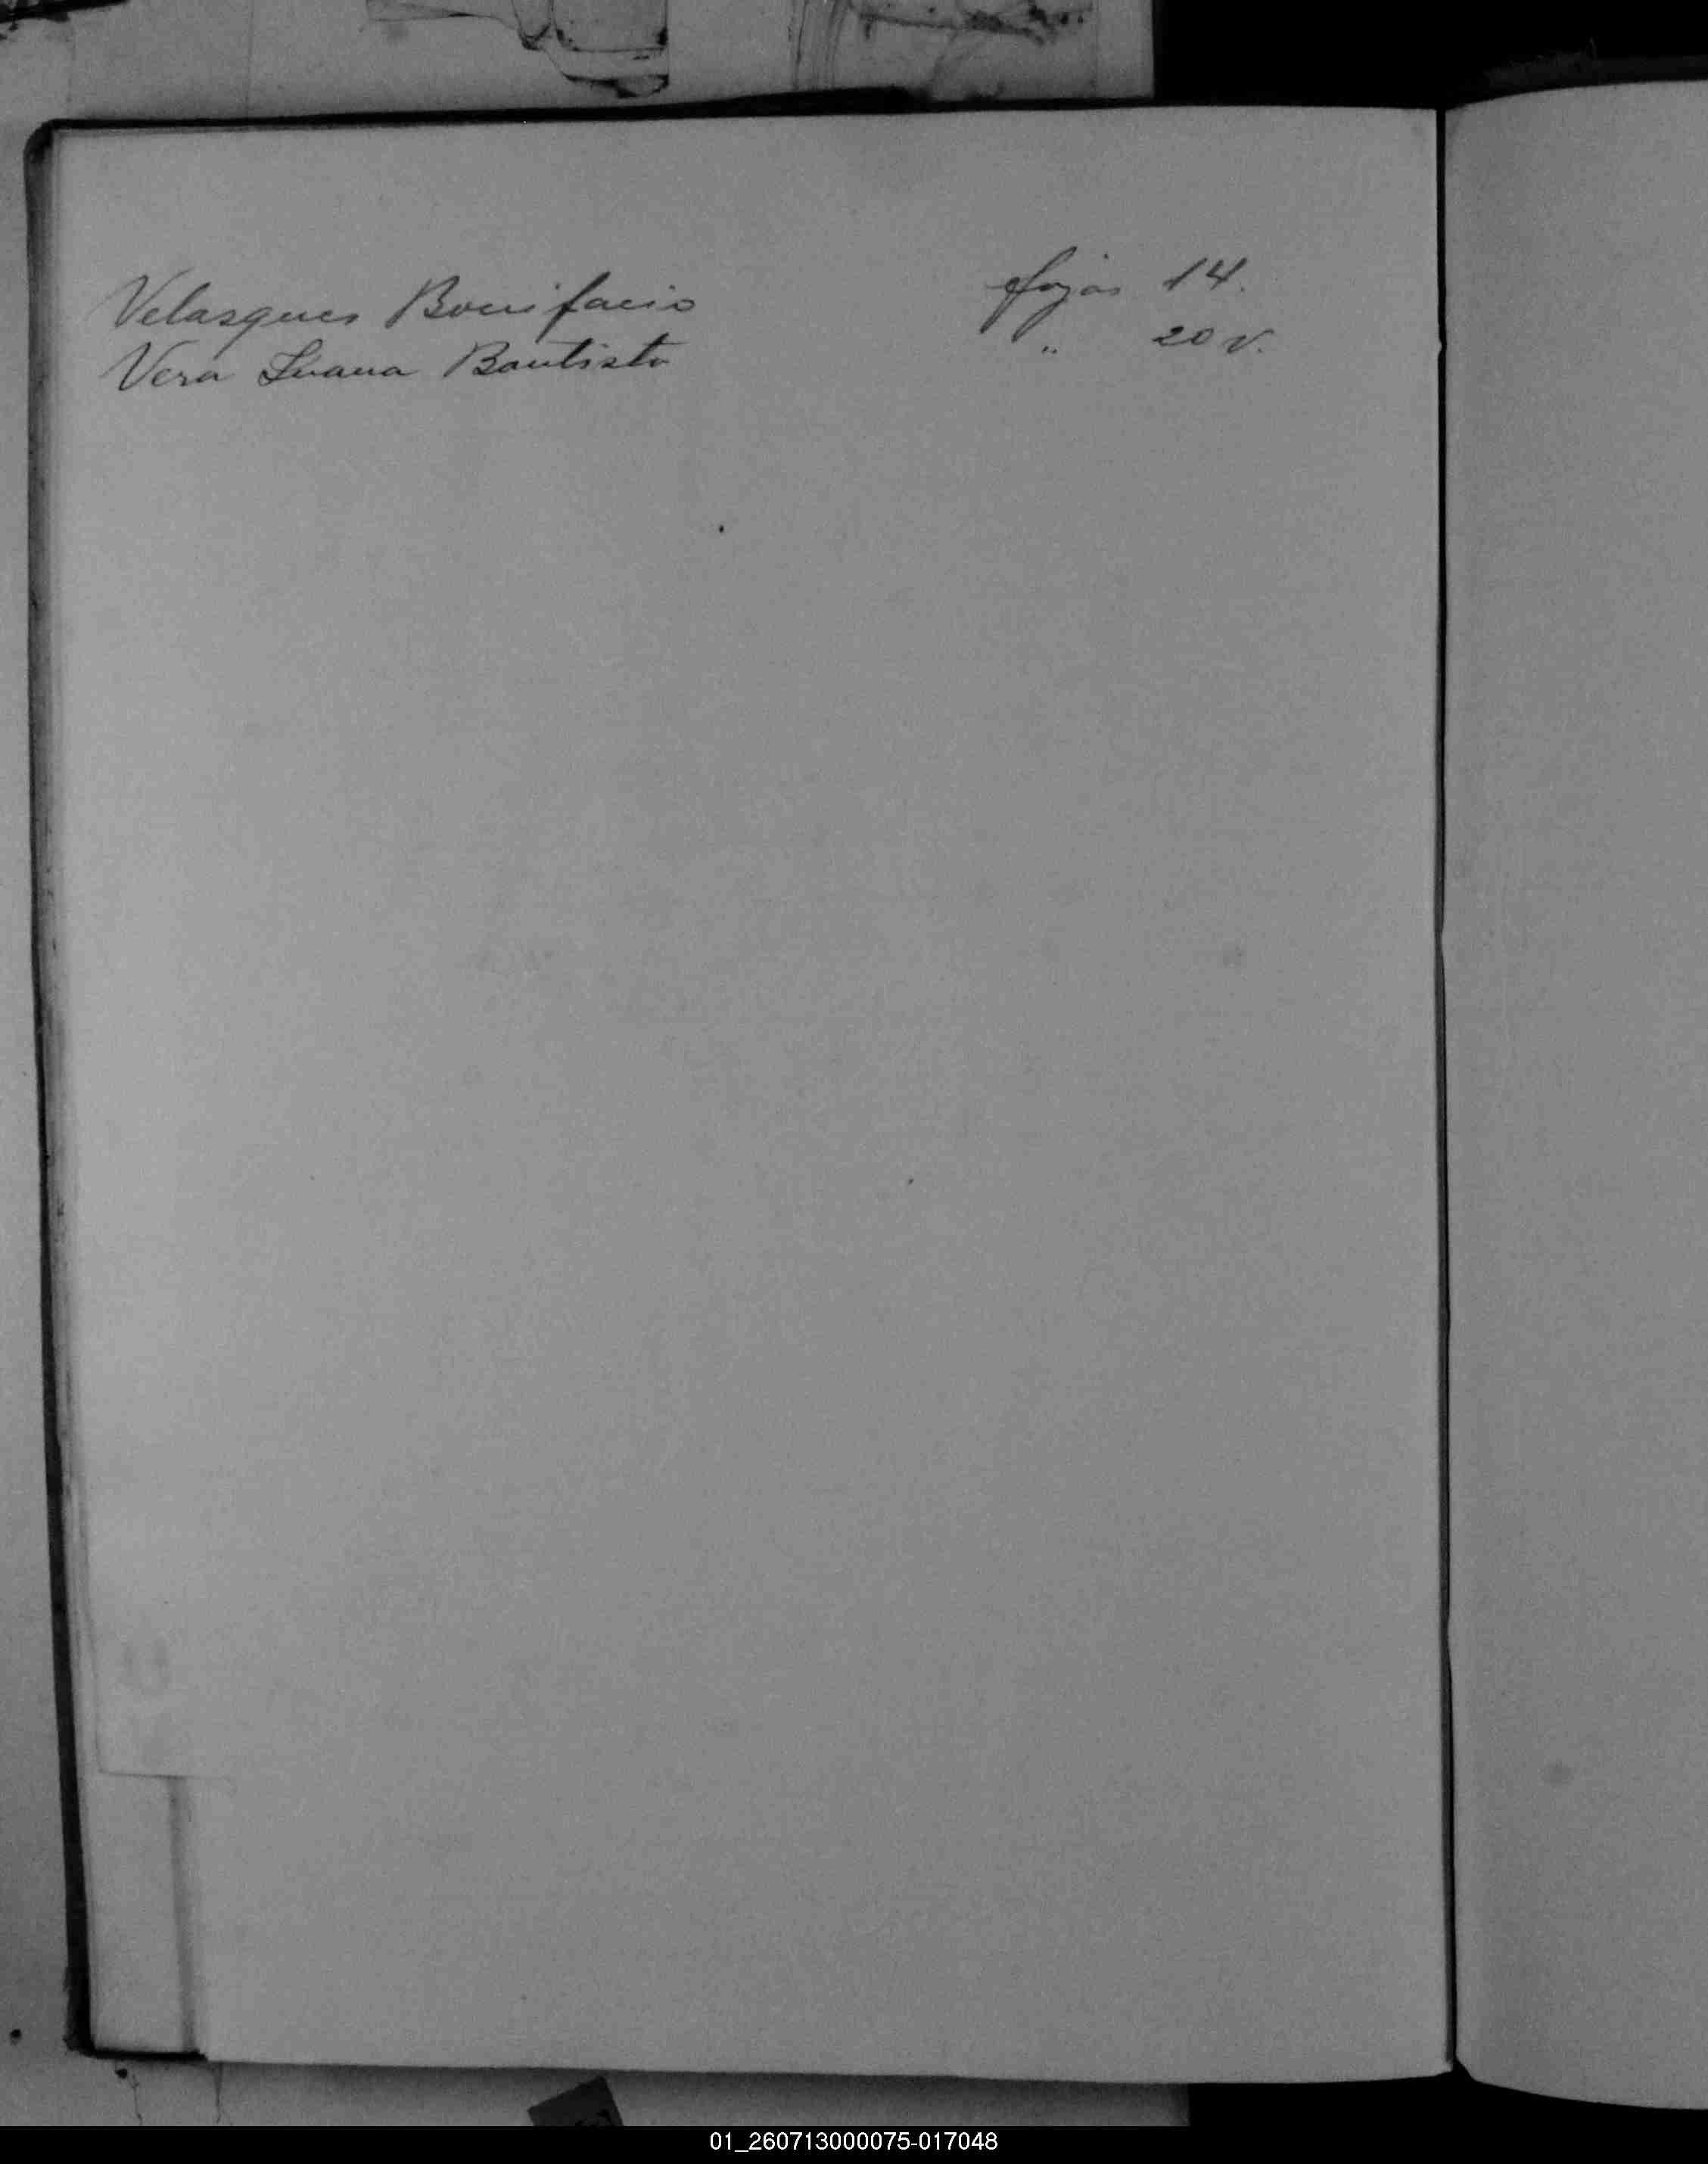 Velasques Bonifacio fojas 14.
Vera Juana Bautista " 20 v.
01_260713000075-017048